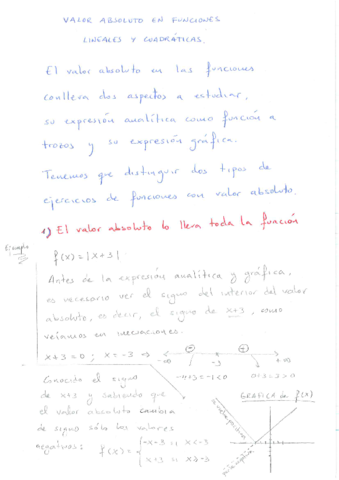 VALOR ABSOLUTO EN FUNCIONES
LINEALES Y CUADRÁTICAS.
El valor absoluto en las funciones
conlleva dos aspectos a estudiar,
su expresión analítica como función a
trozos y su expresión gráfica.
Tenemos que distinguir dos tipos de
ejercicios de funciones con valor absoluto.
1) El valor absoluto lo lleva toda la función
Ejemplo
f(x) = |x+3|
Antes de la expresión analítica y gráfica,
es necesario ver el signo del interior del valor
absoluto, es decir, el signo de x+3, como
veíamos en inecuaciones.
x+3=0 ; x=-3 ⇒
-∞ - -3 + +∞
-4+3=-1<0 0+3=3>0
Conocido el signo
de x+3 y sabiendo que
el valor absoluto cambia
de signo sólo los valores
negativos:
f(x) = { -x-3 si x<-3
x+3 si x≥-3
GRÁFICA de f(x)